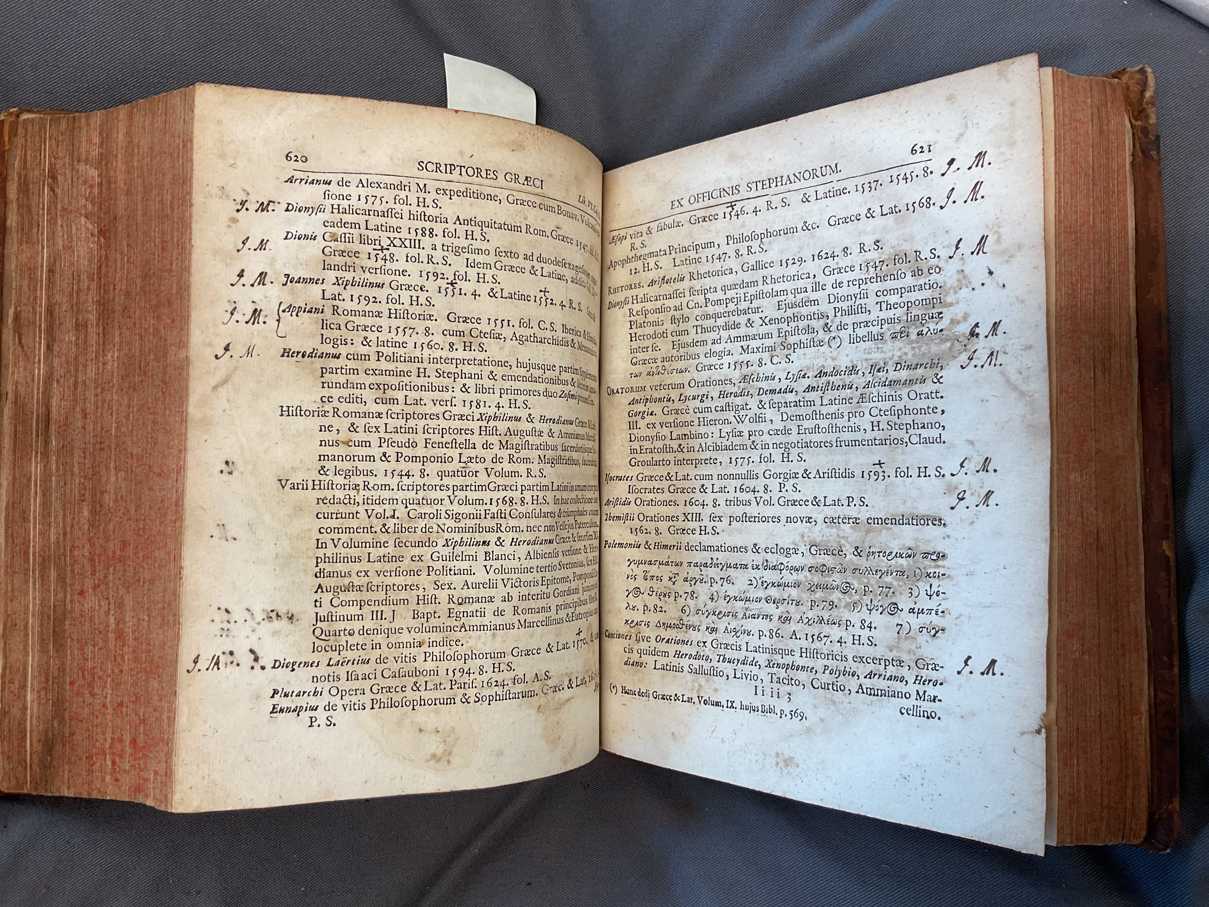 620
SCRIPTORES GRÆCI
Arrianus de Alexandri M. expeditione, Græce cum Bonav.
sione 1575. fol. H. S.
J. M. Dionysii Halicarnassei historia Antiquitatum Rom. Græce 1547.
eadem Latine 1588. fol. H. S.
J. M. Dionis Cassii libri XXIII. a trigesimo sexto ad duodesexagesimum
Græce 1548. fol. R. S. Idem Græce & Latine,
landri versione. 1592. fol. H. S.
J. M. Joannes Xiphilinus Græce. 1551. 4. & Latine 1552. 4. R. S.
Lat. 1592. fol. H. S.
J. M. Appiani Romanæ Historiæ. Græce 1551. fol. C. S. Iberica &
lica Græce 1557. 8. cum Ctesiæ, Agatharchidis &
logis: & latine 1560. 8. H. S.
J. M. Herodianus cum Politiani interpretatione, hujusque partim
partim examine H. Stephani & emendationibus &
rundam expositionibus: & libri primores duo Zosimi
ce editi, cum Lat. vers. 1581. 4. H. S.
Historiæ Romanæ scriptores Græci Xiphilinus & Herodianus
ne, & sex Latini scriptores Hist. Augustæ & Ammianus
nus cum Pseudo Fenestella de Magistratibus
manorum & Pomponio Læto de Rom. Magistratibus,
& legibus. 1544. 8. quatuor Volum. R. S.
Varii Historiæ Rom. scriptores partim Græci partim Latini
redacti, itidem quatuor Volum. 1568. 8. H.S. In hac collectione
current Vol. I. Caroli Sigonii Fasti Consulares &
comment. & liber de Nominibus Rom. nec non Vellejus Paterculus.
In Volumine secundo Xiphilinus & Herodianus Græce &
philinus Latine ex Guilelmi Blanci, Albiensis versione &
dianus ex versione Politiani. Volumine tertio Svetonius,
Augustæ scriptores, Sex. Aurelii Victoris Epitome,
ti Compendium Hist. Romanæ ab interitu Gordiani
Justinum III. J Bapt. Egnatii de Romanis principibus
Quarto denique volumine Ammianus Marcellinus & Eutropius
locuplete in omnia indice.
J. M. Diogenes Laërtius de vitis Philosophorum Græce & Lat. 1570.
notis Isaaci Casauboni 1594. 8. H. S.
Plutarchi Opera Græce & Lat. Paris. 1624. fol. A. S.
Eunapius de vitis Philosophorum & Sophistarum. Græc. & Lat.
P. S.
EX OFFICINIS STEPHANORUM.
621
Æsopi vita & fabulæ. Græce 1546. 4. R. S. & Latine. 1537. 1545. 8. J. M.
R. S.
Apophthegmata Principum, Philosophorum &c. Græce & Lat. 1568. J. M.
12. H. S. Latine 1547. 8. R. S.
RHETORES. Aristotelis Rhetorica, Gallice 1529. 1624. 8. R. S.
Dionysii Halicarnassei scripta quædam Rhetorica, Græce 1547. fol. R. S. J. M
Responsio ad Cn. Pompeji Epistolam qua ille de reprehenso ab eo
Platonis stylo conquerebatur. Ejusdem Dionysii comparatio.
Herodoti cum Thucydide & Xenophontis, Philisti, Theopompi
inter se. Ejusdem ad Ammæum Epistola, & de præcipuis linguæ
Græcæ autoribus elogia. Maximi Sophistæ (*) libellus περὶ ἀλυ- J. M.
των ἀντιθέσεων. Græce 1555. 8. C. S.
ORATORUM veterum Orationes, Æschinis, Lysiæ, Andocidis, Isæi, Dinarchi, J. M.
Antiphontis, Lycurgi, Herodis, Demadis, Antisthenis, Alcidamantis &
Gorgiæ. Græce cum castigat. & separatim Latine Æschinis Oratt.
III. ex versione Hieron. Wolfii, Demosthenis pro Ctesiphonte,
Dionysio Lambino: Lysiæ pro cæde Erastosthenis, H. Stephano,
in Eratosth. & in Alcibiadem & in negotiatores frumentarios, Claud.
Groularto interprete, 1575. fol. H. S.
Isocrates Græce & Lat. cum nonnullis Gorgiæ & Aristidis 1593. fol. H. S. J. M.
Isocrates Græce & Lat. 1604. 8. P. S.
Aristidis Orationes. 1604. 8. tribus Vol. Græce & Lat. P. S. J. M.
Themistii Orationes XIII. sex posteriores novæ, cæteræ emendatiores.
1562. 8. Græce H. S.
Polemonis & Himerii declamationes & eclogæ, Græce, & ῥητορικῶν προ-
γυμνασμάτων παραδείγματα ἐκ διαφόρων σοφιστῶν συλλεγέντα, 1) κοι-
νὸς τόπος κατ' ἀργῦ. p. 76. 2) ἐγκώμιον χειμῶνος, p. 77. 3) ψό-
γος θέρους p. 78. 4) ἐγκώμιον Θερσίτου. p. 79. 5) ψόγος ἀμπέ-
λου. p. 82. 6) σύγκρισις Αἴαντος καὶ Ἀχιλλέως p. 84. 7) σύγ-
κρισις Δημοσθένους καὶ Αἰσχίνου. p. 86. A. 1567. 4. H. S.
Conciones sive Orationes ex Græcis Latinisque Historicis excerptæ, Græ- J. M.
cis quidem Herodoto, Thucydide, Xenophonte, Polybio, Arriano, Hero-
diano: Latinis Sallustio, Livio, Tacito, Curtio, Ammiano Mar-
Iiii 3
cellino.
(*) Hunc dedi Græce & Lat. Volum, IX. hujus Bibl. p. 569.